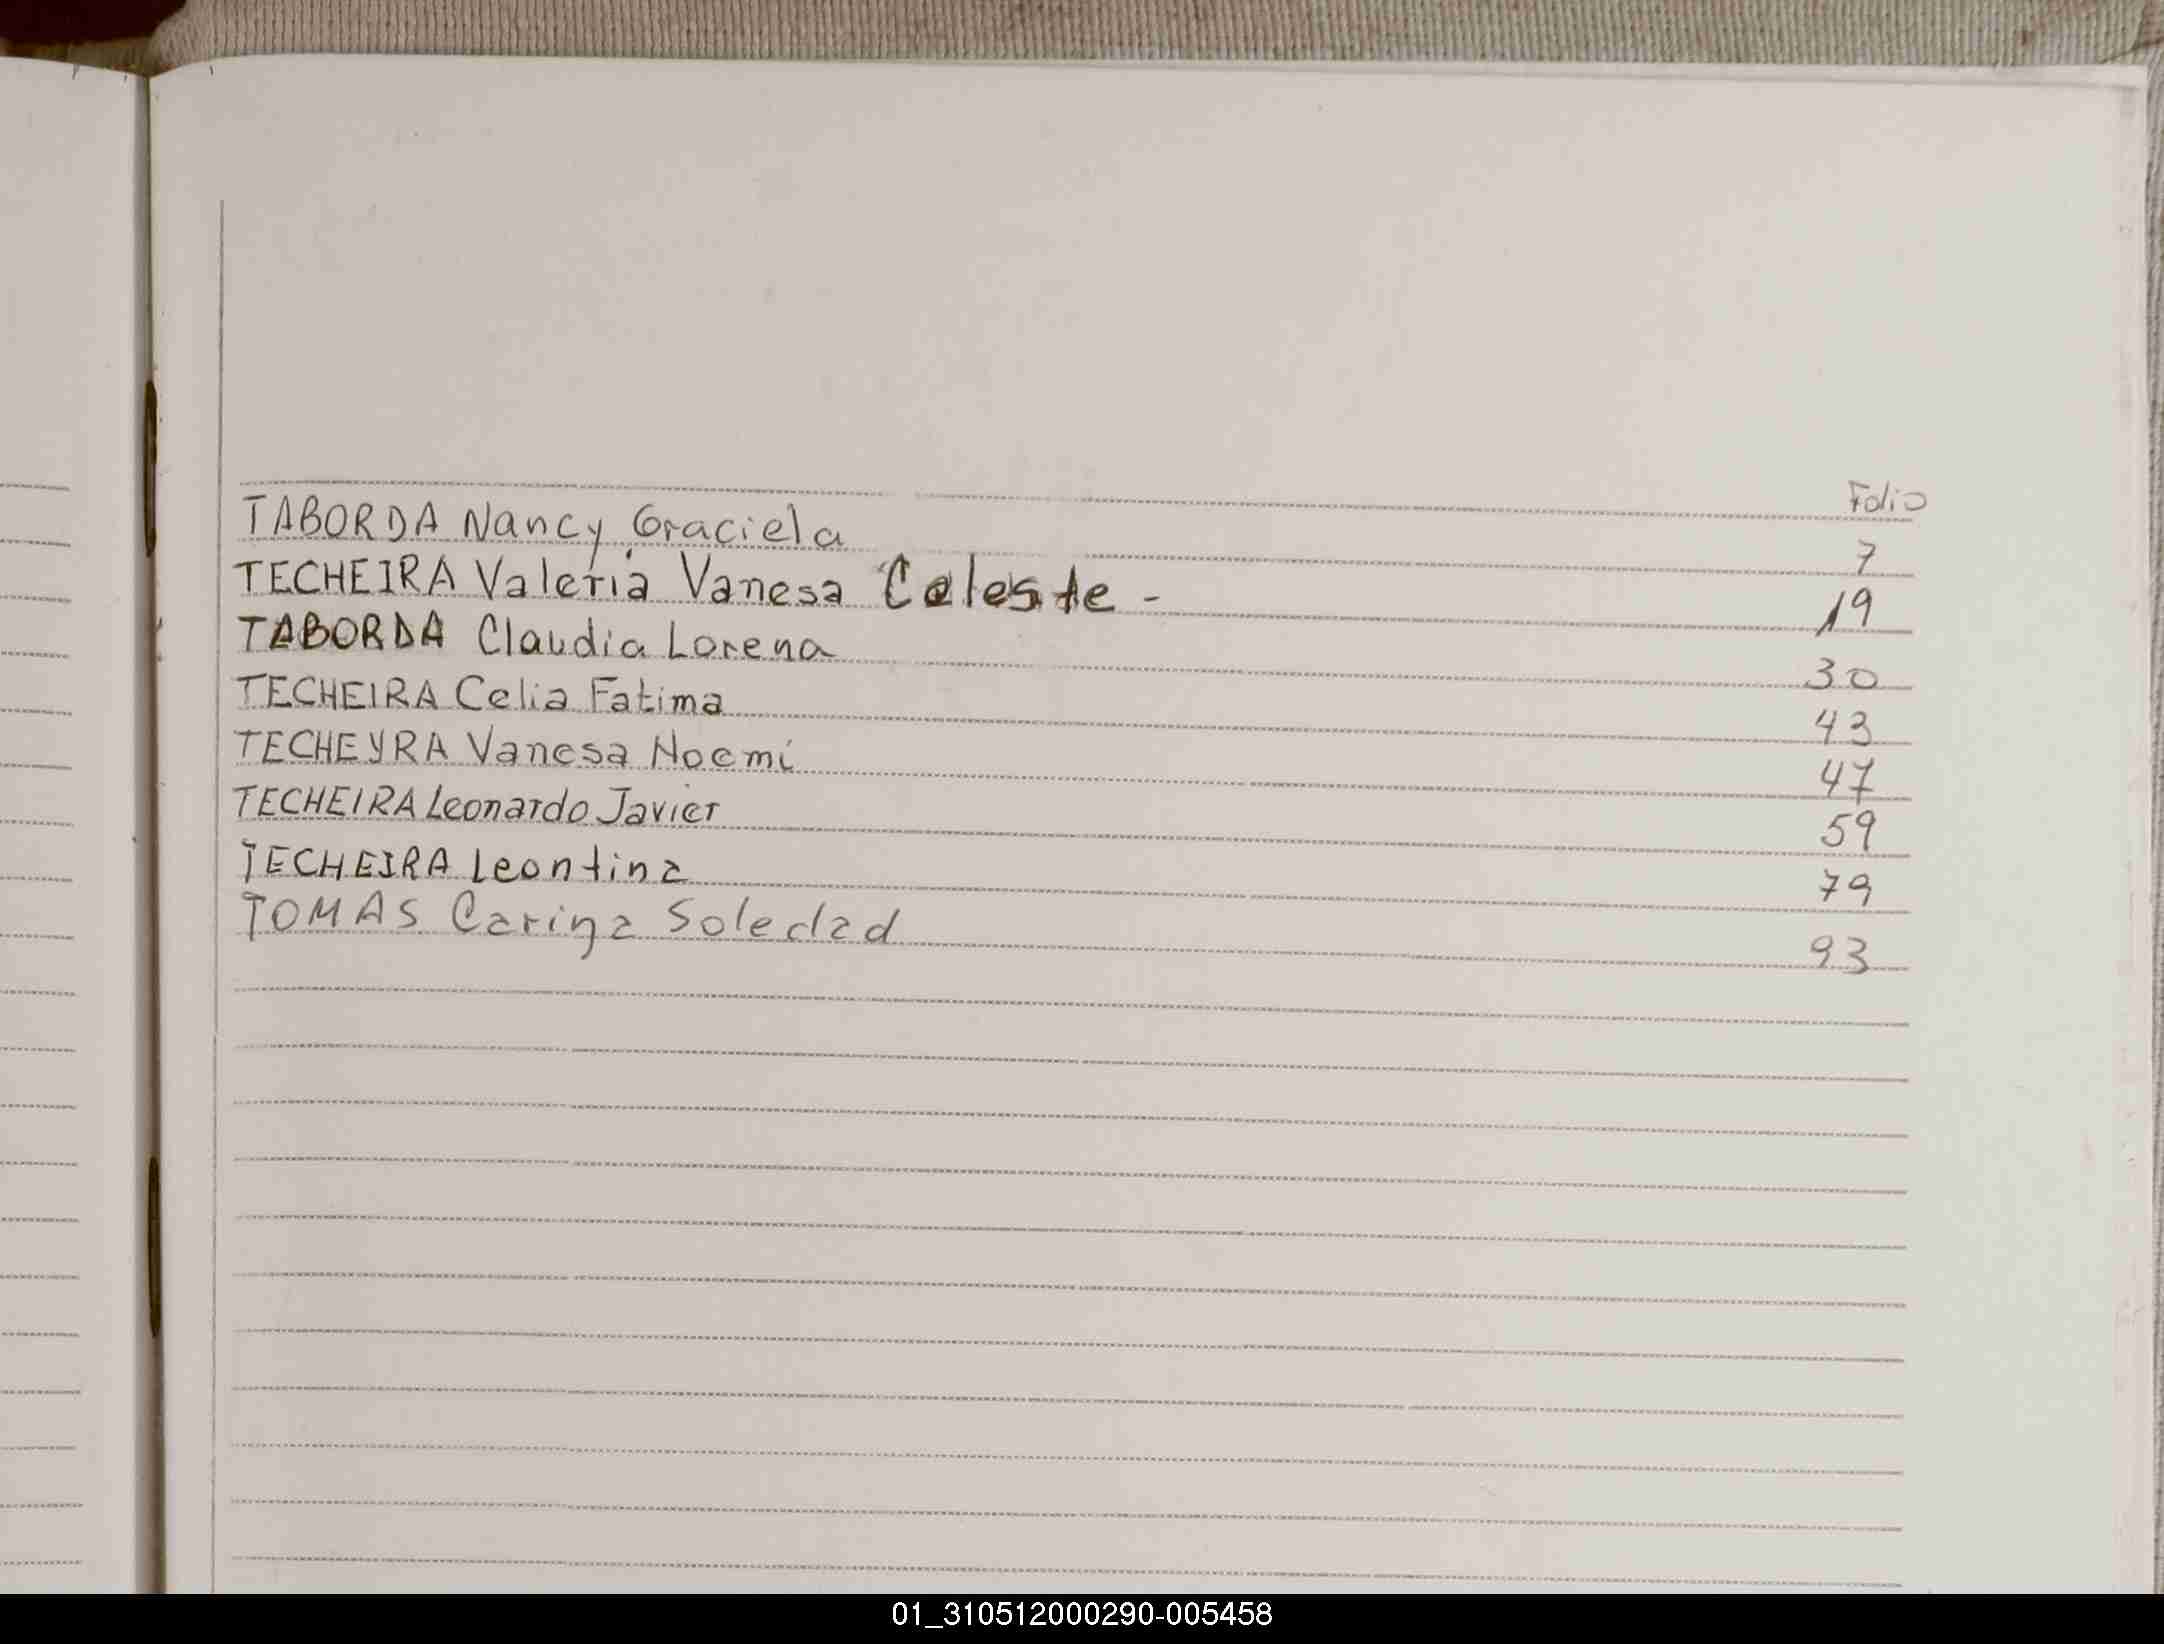 Folio
TABORDA Nancy Graciela 7
TECHEIRA Valeria Vanesa Celeste - 19
TABORDA Claudia Lorena 30
TECHEIRA Celia Fatima 43
TECHEYRA Vanesa Noemí 47
TECHEIRA Leonardo Javier 59
TECHEIRA Leontina 79
TOMAS Carina Soledad 93
01_310512000290-005458